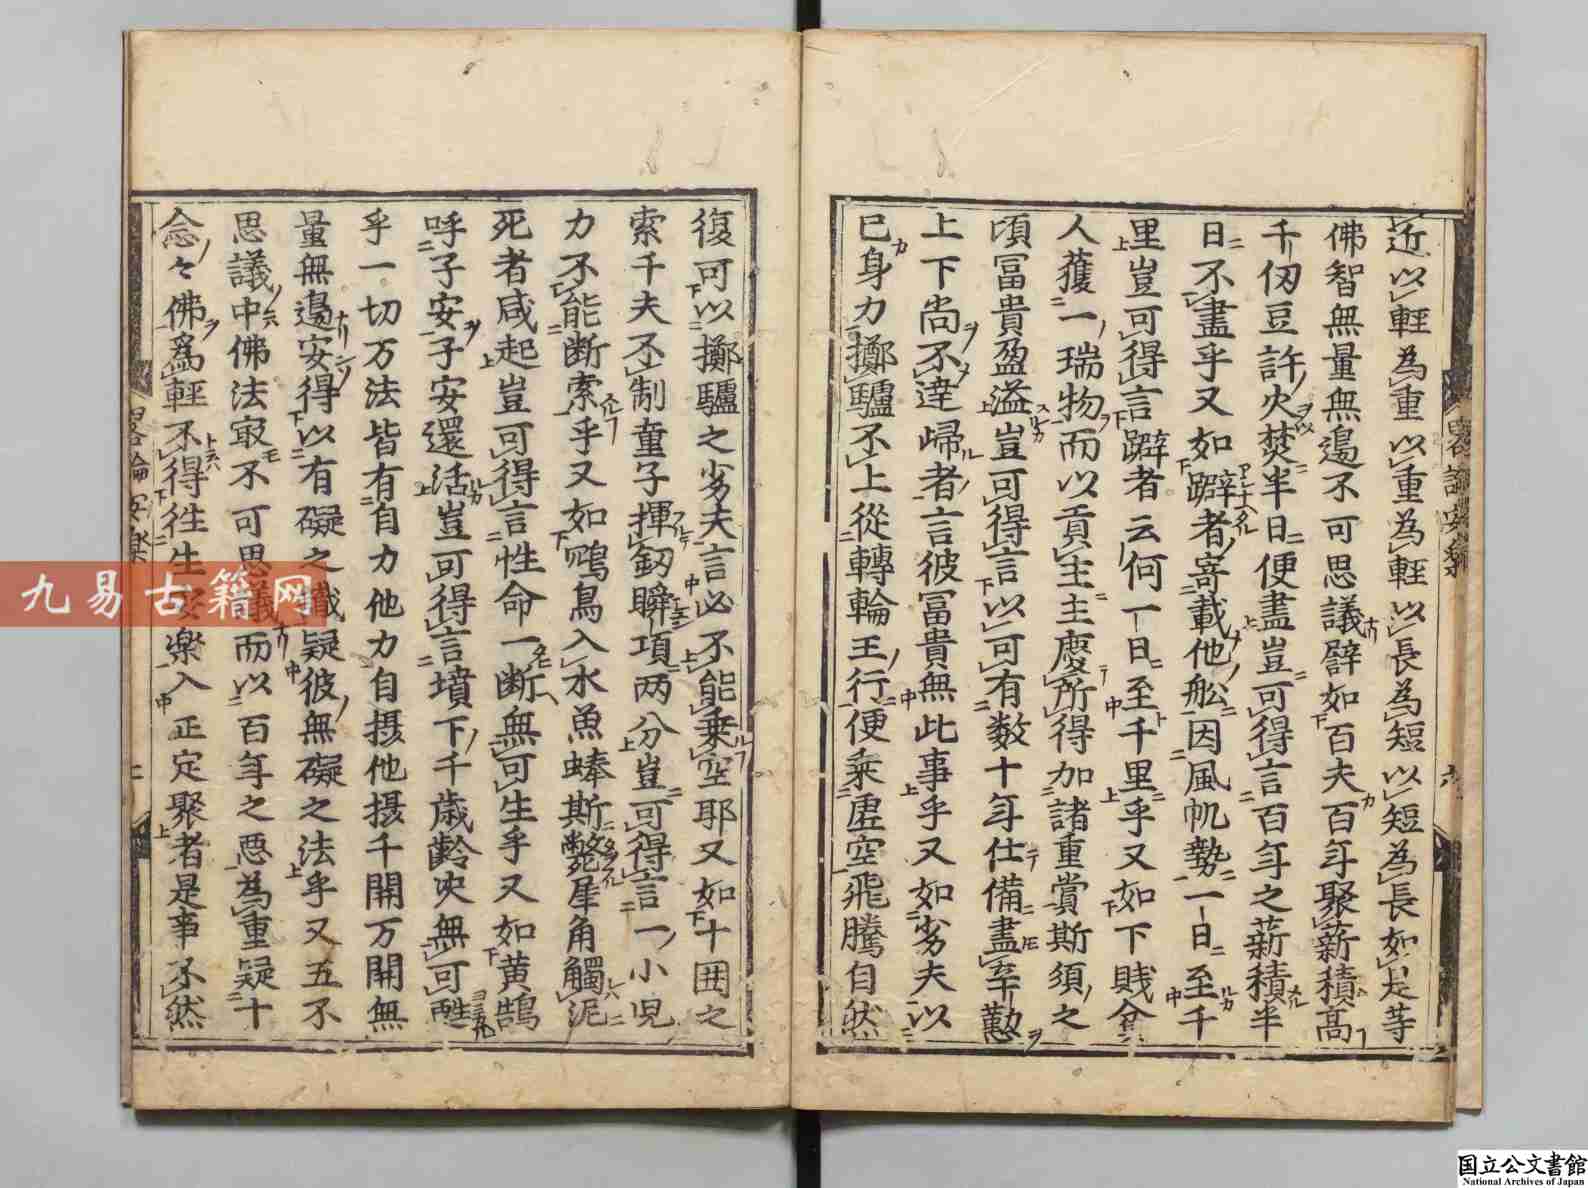 近以輕為重以重為輕以長為短以短為長如是等
佛智無量無邊不可思議譬如百夫百年聚薪積高
千仞豆許火焚半日便盡豈可得言百年之薪積半
日不盡乎又如躄者寄載他舩因風帆勢一日至千
里豈可得言躄者云何一日至千里乎又如下賎貧
人獲一瑞物而以貢主主慶所得加諸重賞斯須之
頃冨貴盈溢豈可得言以可有数十年仕備盡辛懃
上下尚不達歸者言彼冨貴無此事乎又如劣夫以
已身力擲驢不上從轉輪王行便乗虛空飛騰自然
復可以擲驢之劣夫言必不能乗空耶又如十囲之
索千夫不制童子揮釼瞬項两分豈可得言一小児
力不能断索乎又如鴆鳥入水魚蜯斯斃犀角觸泥
死者咸起豈可得言性命一断無可生乎又如黄鵠
呼子安子安還活豈可得言墳下千歳齡決無可甦
乎一切万法皆有自力他力自摂他摂千開万開無
量無邊安得以有礙之識疑彼無礙之法乎又五不
思議中佛法㝡不可思議而以百年之悪為重疑十
念々佛爲輕不得徃生安樂入正定聚者是事不然
九易古籍网
国立公文書館
National Archives of Japan